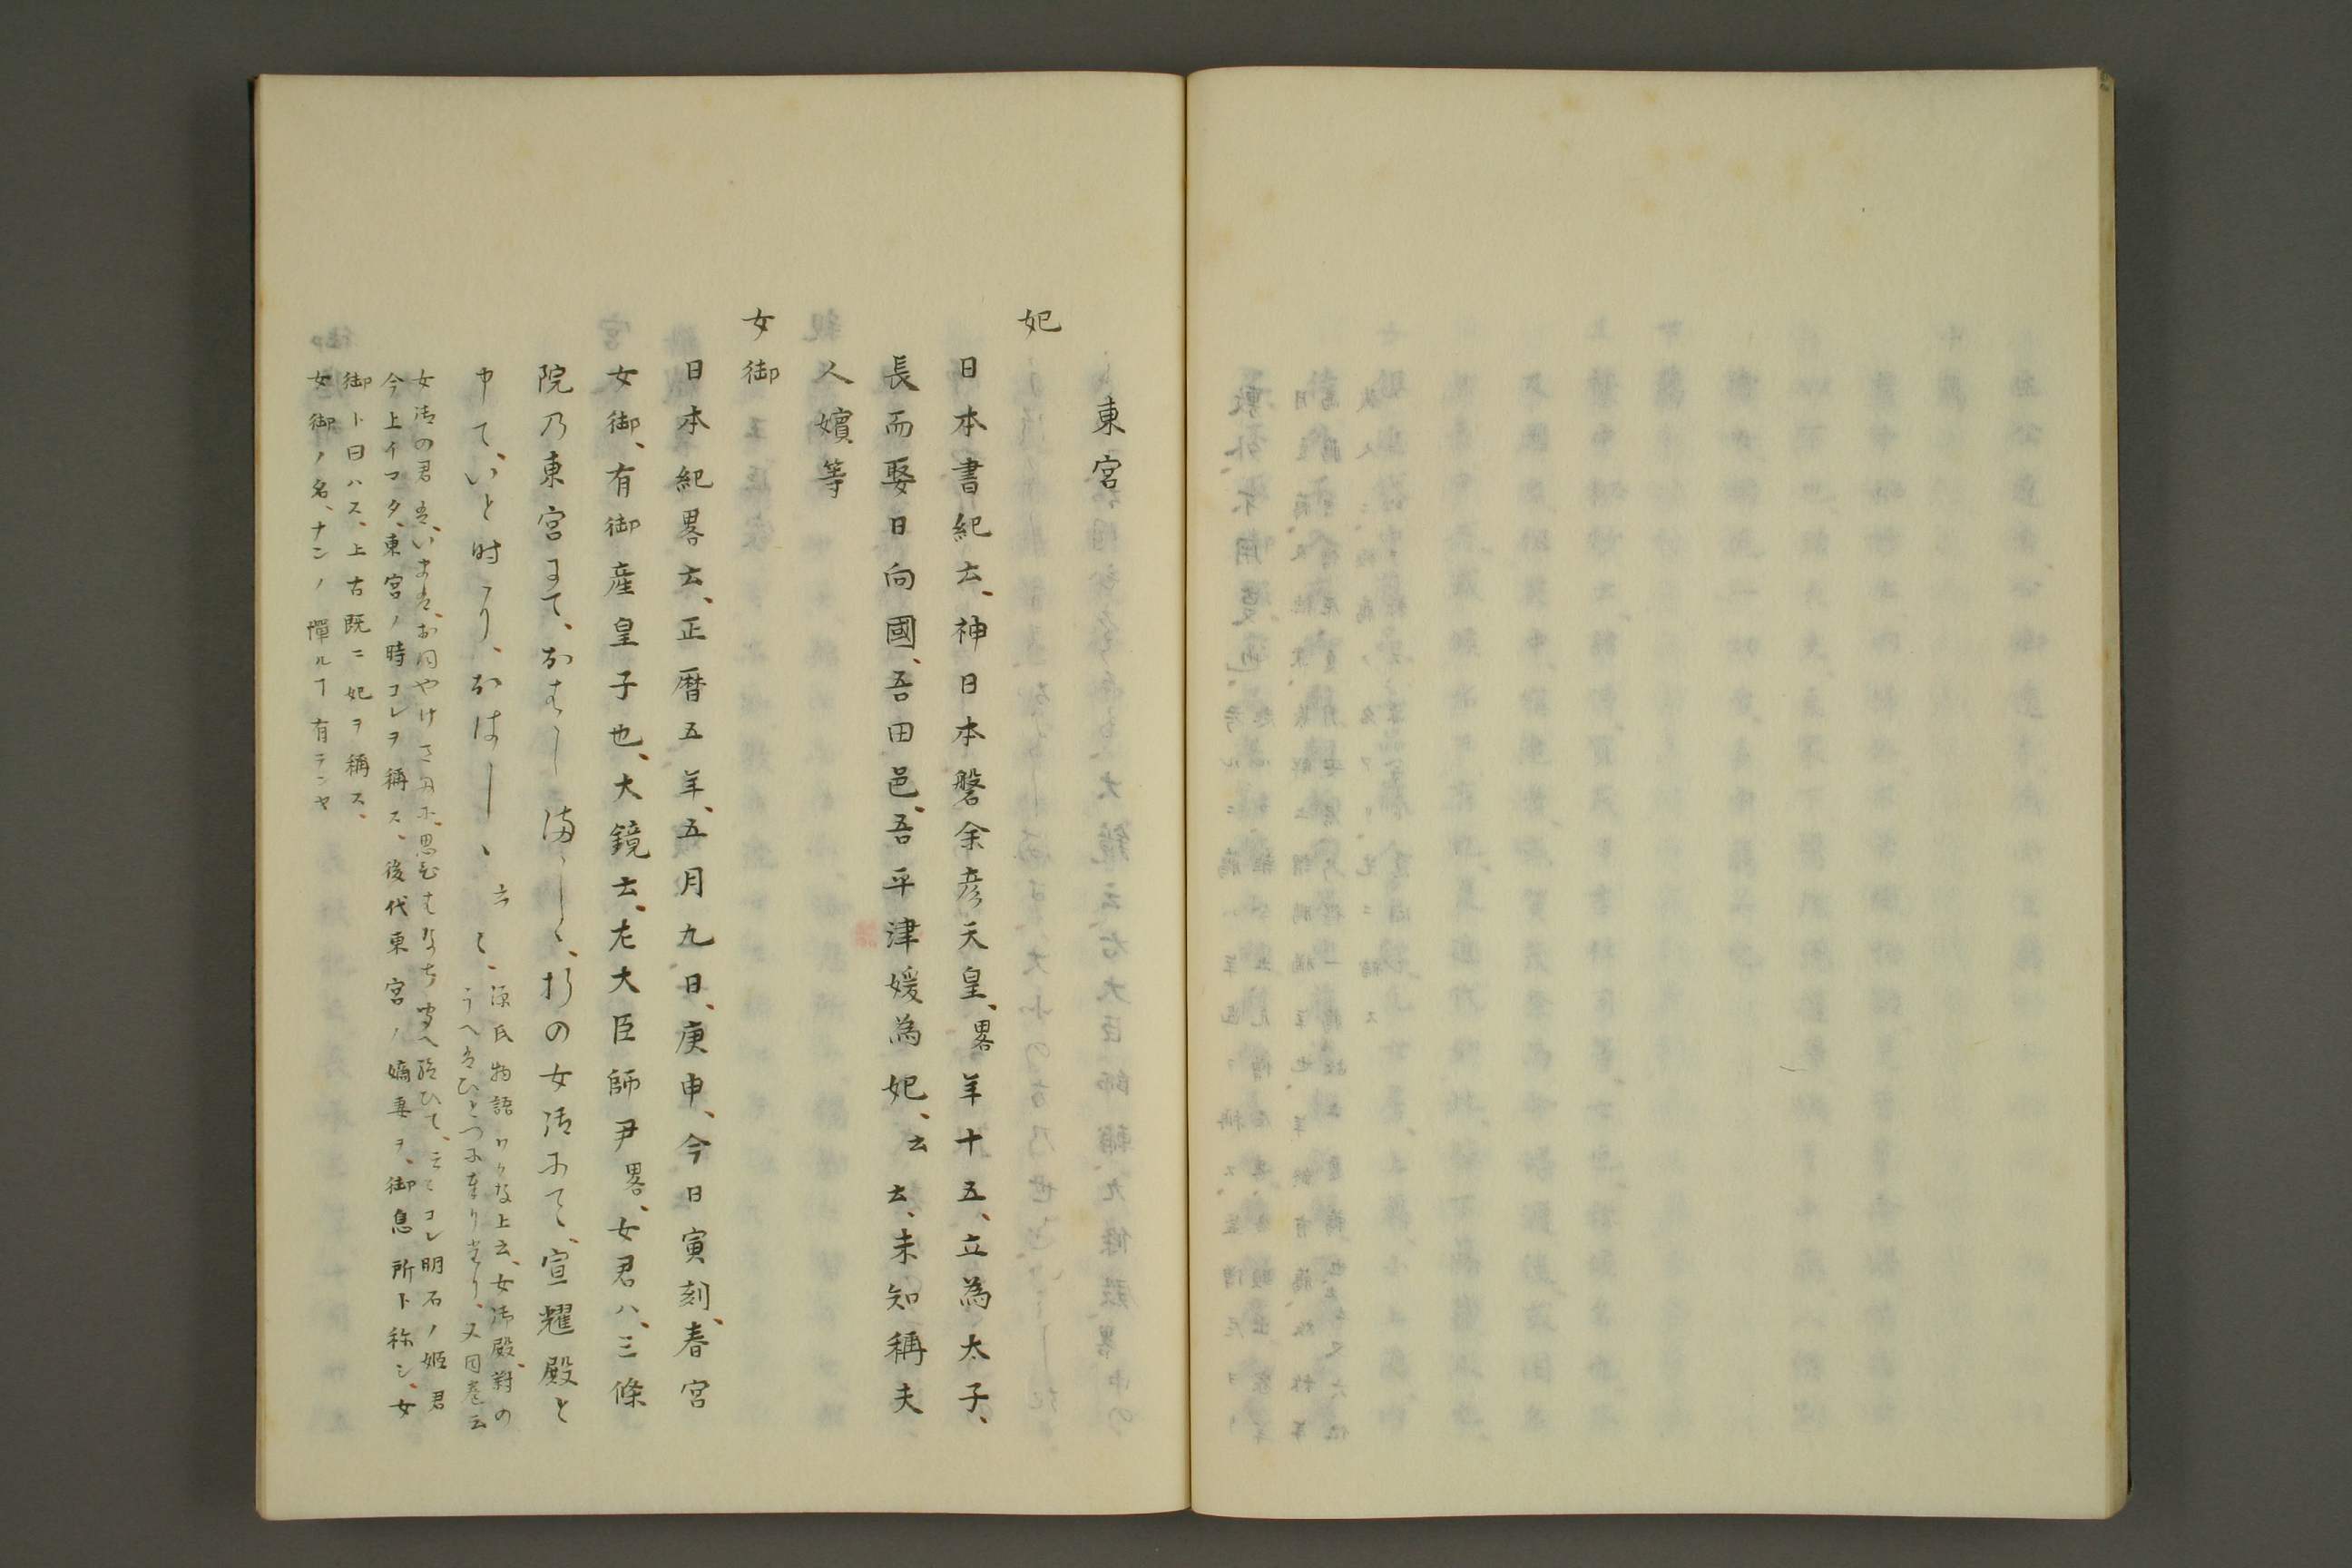 東宮
妃
日本書紀云、神日本磐余彦天皇、畧年十五、立為太子、
長而娶日向國、吾田邑、吾平津媛為妃、云云、未知稱夫
人嬪等
女御
日本紀畧云、正暦五年、五月九日、庚申、今日寅刻、春宮
女御、有御産皇子也、大鏡云、左大臣師尹畧、女君ハ、三條
院乃東宮にて、おはしましゝ、折の女御にて、宣耀殿と
申て、いと時めき、おはしゝ、云々、
源氏物語わかな上云、女御殿、對の
うへは、ひとつに奉りたり、又同巻云
女御の君も、いまは、おほやけさまに、思ひはなち聞え給ひて、云々コレ明石ノ姫君
今上イマタ、東宮ノ時コレヲ稱ス、後代東宮ノ嫡妻ヲ、御息所ト称シ、女
御ト曰ハス、上古既ニ妃ヲ稱ス、
女御ノ名、ナンノ憚ルヿ有ランヤ